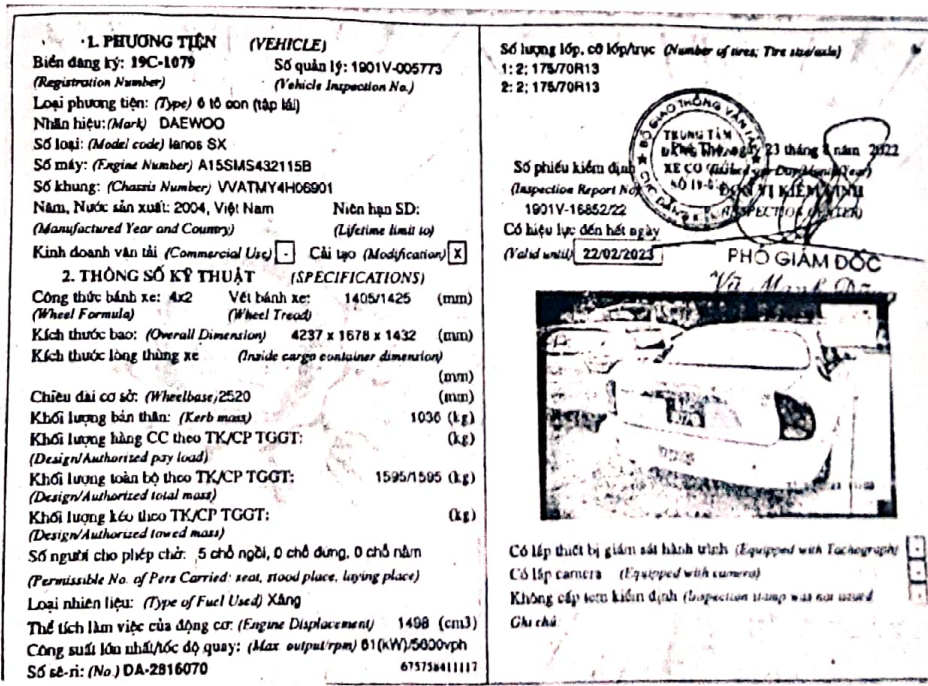 1. PHƯƠNG TIỆN (VEHICLE)
Biển đăng ký: 19C-1079 Số quản lý: 1901V-005773
(Registration Number) (Vehicle Inspection No.)
Loại phương tiện: (Type) ô tô con (tập lái)
Nhãn hiệu: (Mark) DAEWOO
Số loại: (Model code) lanos SX
Số máy: (Engine Number) A15SMS432115B
Số khung: (Chassis Number) VVATMY4H06901
Năm, Nước sản xuất: 2004, Việt Nam Niên hạn SD:
(Manufactured Year and Country) (Lifetime limit to)
Kinh doanh vận tải (Commercial Use) - Cải tạo (Modification) X
2. THÔNG SỐ KỸ THUẬT (SPECIFICATIONS)
Công thức bánh xe: 4x2 Vết bánh xe: 1405/1425 (mm)
(Wheel Formula) (Wheel Tread)
Kích thước bao: (Overall Dimension) 4237 x 1678 x 1432 (mm)
Kích thước lòng thùng xe (Inside cargo container dimension)
(mm)
Chiều dài cơ sở: (Wheelbase) 2520 (mm)
Khối lượng bản thân: (Kerb mass) 1036 (kg)
Khối lượng hàng CC theo TK/CP TGGT: (kg)
(Design/Authorized pay load)
Khối lượng toàn bộ theo TK/CP TGGT: 1595/1595 (kg)
(Design/Authorized total mass)
Khối lượng kéo theo TK/CP TGGT: (kg)
(Design/Authorized towed mass)
Số người cho phép chở: 5 chỗ ngồi, 0 chỗ đứng, 0 chỗ nằm
(Permissible No. of Pers Carried: seat, stood place, laying place)
Loại nhiên liệu: (Type of Fuel Used) Xăng
Thể tích làm việc của động cơ: (Engine Displacement) 1498 (cm3)
Công suất lớn nhất/tốc độ quay: (Max. output/rpm) 61(kW)/5600vph
Số sê-ri: (No.) DA-2816070 675758411117
Số lượng lốp, cỡ lốp/trục (Number of tires; Tire size/axle)
1: 2; 175/70R13
2: 2; 175/70R13
BỘ GIAO THÔNG VẬN TẢI
TRUNG TÂM
XE CƠ
23 tháng 8 năm 2022
Số phiếu kiểm định
(Inspection Report No)
ĐƠN VỊ KIỂM ĐỊNH
1901V-16852/22 (INSPECTION CENTER)
Có hiệu lực đến hết ngày
(Valid until) 22/02/2023
PHÓ GIÁM ĐỐC
Có lắp thiết bị giám sát hành trình (Equipped with Tachograph) -
Có lắp camera (Equipped with camera) -
Không cấp tem kiểm định (Inspection stamp was not issued -
Ghi chú